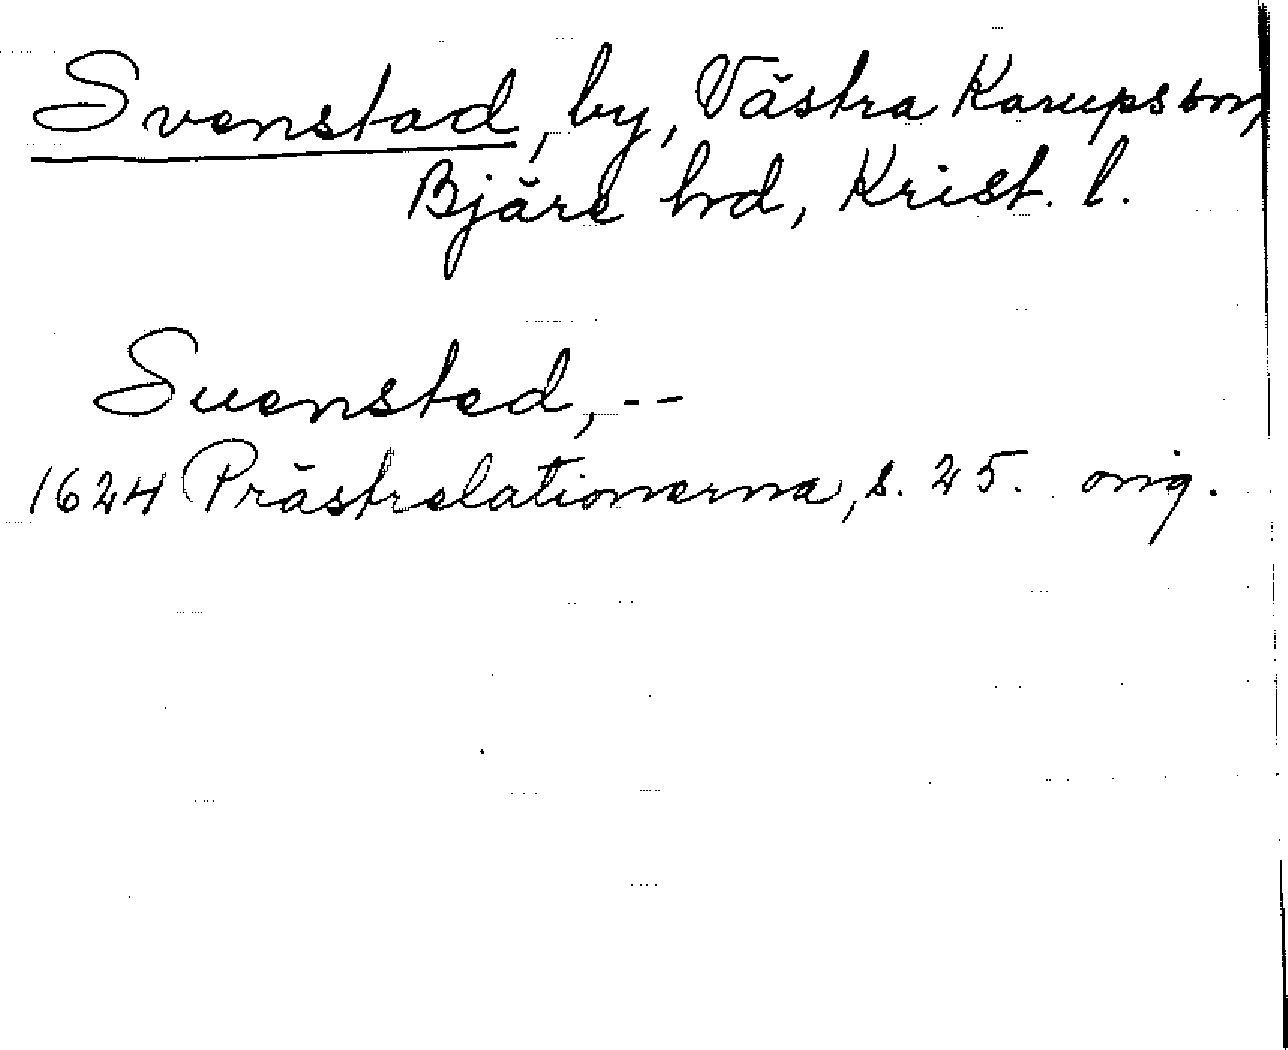 Svenstad, by, Västra Karups sn,
Bjäre hd, Krist. l.
Suensted, --
1624 Prästrelationerna, s. 25. orig.